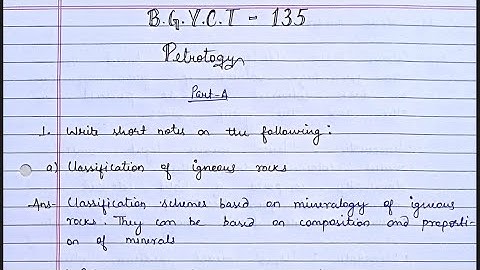 B.G.Y.C.T - 135
Petrology
Part-A
1. Write short notes on the following:
a) Classification of igneous rocks
Ans- Classification schemes based on mineralogy of igneous
rocks. They can be based on composition and proporti-
on of minerals